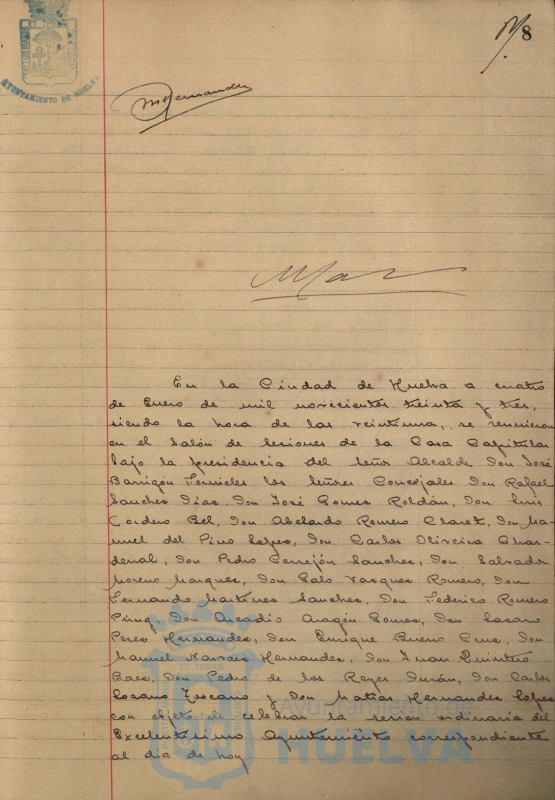 8
AYUNTAMIENTO DE HUELVA
MHernandez
En la Ciudad de Huelva a cuatro
de Enero de mil novecientos treinta y tres,
siendo la hora de las veintiuna, se reunieron
en el Salón de Sesiones de la Casa Capitular
bajo la presidencia del Señor Alcalde Don José
Barrigón Fornieles los Señores Concejales Don Rafael
Sanchez Diaz, Don José Gomez Roldán, Don Luis
Cordero Bel, Don Abelardo Romero Claret, Don Ma-
nuel del Pino Lopez, Don Carlos Oliveira Char-
denal, Don Pedro Cerrejón Sanchez, Don Salvador
Moreno Marquez, Don Galo Vazquez Romero, Don
Fernando Martinez Sanchez, Don Federico Romero
Don Arcadio Aragón Gomez, Don Lazaro
Perez Hernandez, Don Enrique Bueno Cruz, Don
Manuel Narvaez Hernandez, Don Juan Quintero
Baez, Don Pedro de los Reyes Durán, Don Carlos
Lozano Toscano y Don Matias Hernandez Lopez
con objeto de celebrar la sesion ordinaria del
Excelentisimo Ayuntamiento correspondiente
al dia de hoy.
Ayuntamiento de
HUELVA